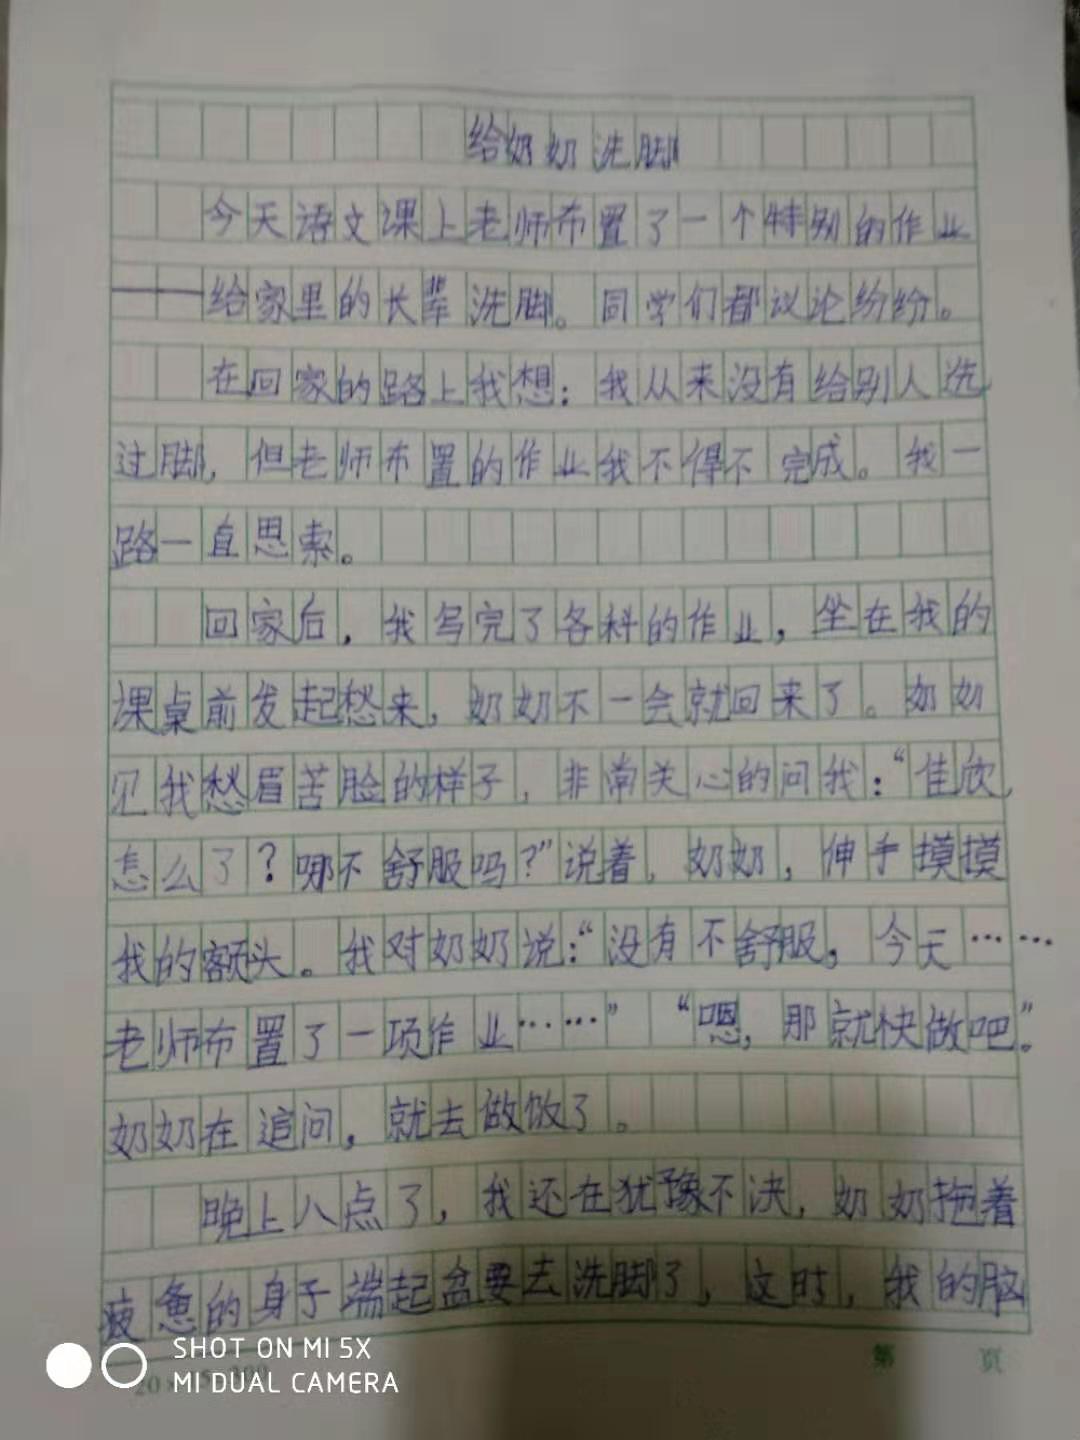 给奶奶洗脚
今天语文课上老师布置了一个特别的作业
——给家里的长辈洗脚。同学们都议论纷纷。
在回家的路上我想：我从来没有给别人洗
过脚，但老师布置的作业我不得不完成。我一
路一直思索。
回家后，我写完了各科的作业，坐在我的
课桌前发起愁来，奶奶不一会就回来了。奶奶
见我愁眉苦脸的样子，非常关心的问我：“佳欣，
怎么了？哪不舒服吗？”说着，奶奶，伸手摸摸
我的额头。我对奶奶说：“没有不舒服，今天……
老师布置了一项作业……” “嗯，那就快做吧。”
奶奶在追问，就去做饭了。
晚上八点了，我还在犹豫不决，奶奶拖着
疲惫的身子端起盆要去洗脚了，这时，我的脑
SHOT ON MI 5X
MI DUAL CAMERA
第 页